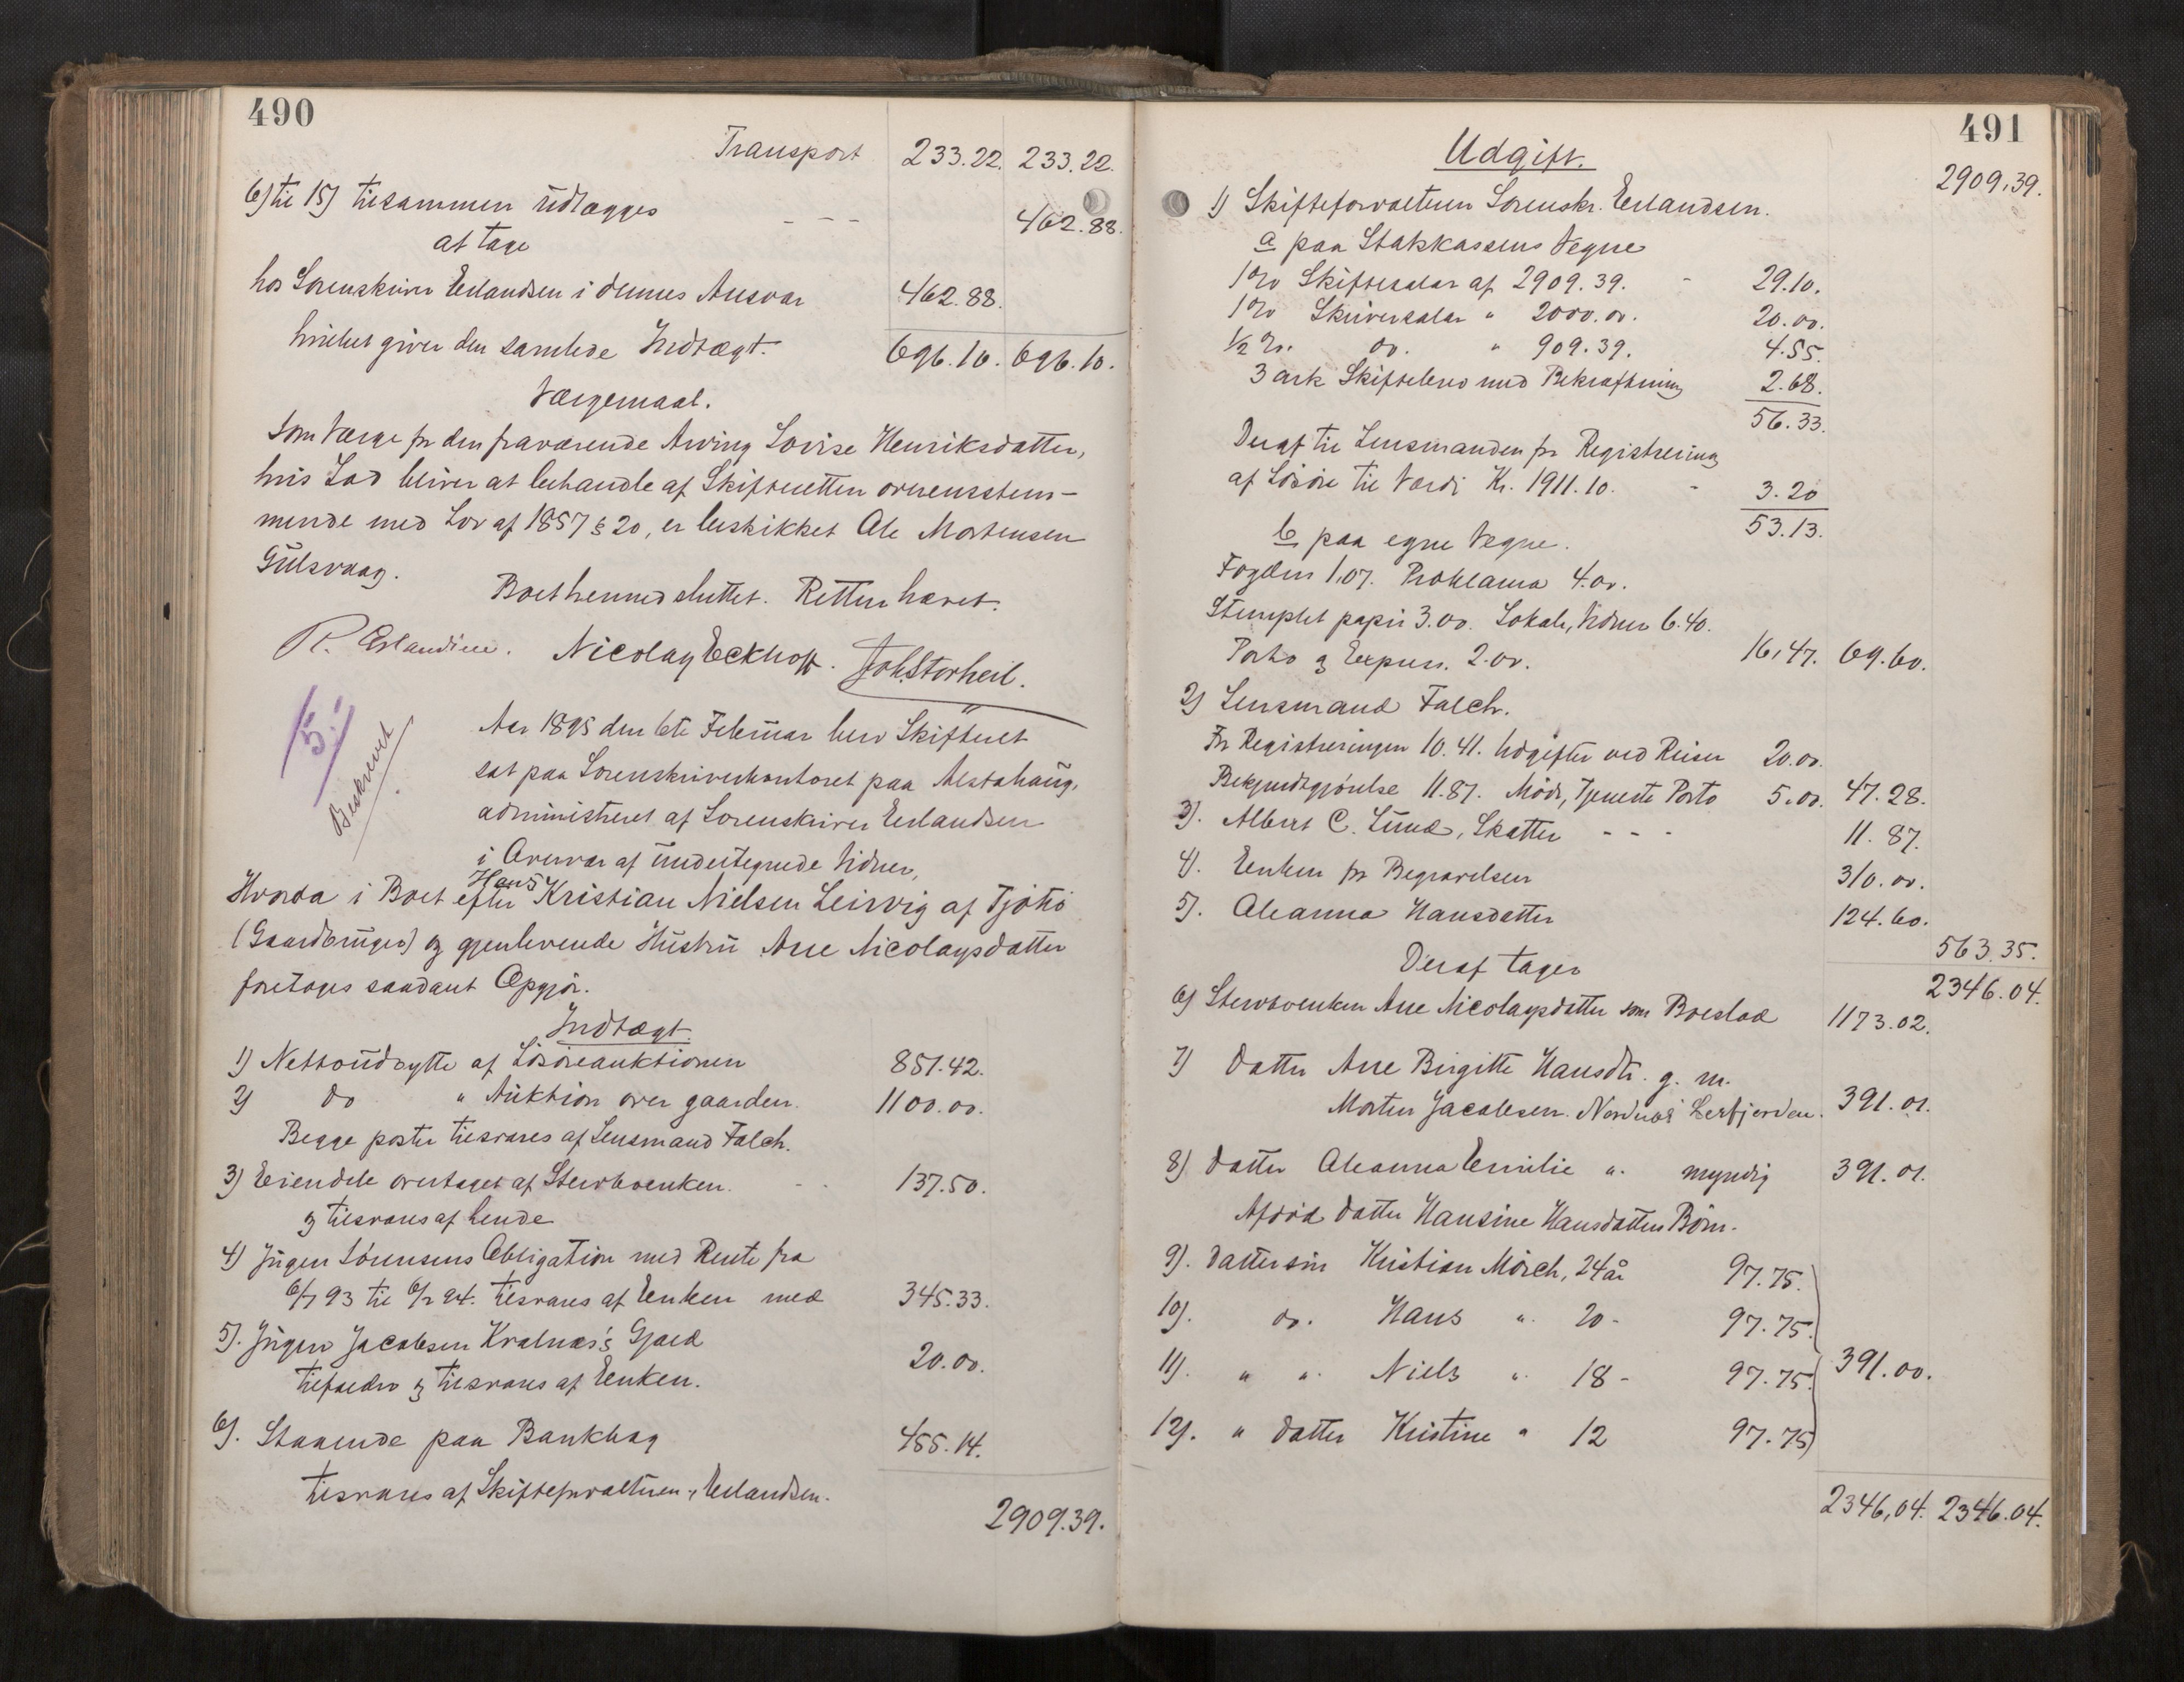 490
Transport 233.22. 233.22.
6) til 15) tilsammen udlægges - - - 462.88.
at tage
hos Sorenskriver Erlandsen i dennes Ansvar 462.88.
hvilket giver den samlede Indtægt. 696.10. 696.10.
Værgemaal.
Som Værge for den fraværende Arving Lovise Henriksdatter,
hvis Lod bliver at behandle af Skifteretten overensstem-
mende med Lov af 1857 § 20, er beskikket Ole Mortensen
Gulsvaag.
Boet hermed sluttet. Retten hævet.
R. Erlandsen. Nicolay Eckhoff. Joh. Storheil.
5.
Beskrevet
Aar 1895 den 6te Februar blev Skifteret
sat paa Sorenskriverkontoret paa Alstahaug,
administreret af Sorenskriver Erlandsen
i Overvær af undertegnede Vidner,
Hvorda i Boet efter Hans Kristian Nielsen Leirvig af Tjøttø
(Gaardbruger) og gjenlevende Hustru Ane Nicolaysdatter
foretoges saadant Opgjør.
Indtægt.
1) Nettoudbytte af Løsøreauktionen 851.42.
2) do " Auktion over gaarden 1100.00.
Begge poster tilsvares af Lensmand Falch.
3) Eiendele overtaget af Stervboenken. - - 137.50.
og tilsvares af hende
4) Jørgen Sørensens Obligation med Rente fra
6/7 93 til 6/2 94. tilsvares af Enken med 345.33.
5). Jørgen Jacobsen Kvalnæs's Gjæld
tilfælder og tilsvares af Enken. 20.00.
6). Staaende paa Bankbog 455.14.
tilsvares af Skifteforvalteren, Erlandsen.
2909.39.
491
Udgift. 2909.39.
1) Skifteforvalteren Sorenskr. Erlandsen.
a paa Statskassens Vegne
1% Skiftesalær af 2909.39. - 29.10.
1% Skriversalær " 2000.00. 20.00.
½ %. do. " 909.39. 4.55.
3 ark Skiftebrev med Bekræftning 2.68.
56.33.
Deraf til Lensmanden for Registrering
af Løsøre til Værdi Kr. 1911.10. - 3.20
53.13.
b paa egne Vegne.
Fogden 1.07. Proklama 4.00.
Stemplet papir 3.00. Lokale, Vidner 6.40.
Porto og Expen. 2.00. 16.47. 69.60.
2) Lensmand Falch.
For Registreringen 10.41. Udgifter ved Reiser 20.00.
Bekjendtgjørelse 11.87. Møde, Tjeneste Porto 5.00. 47.28.
3). Albert C. Lund, Skatter - - - 11.87.
4). Enken for Begravelsen 310.00.
5). Oleanna Hansdatter 124.60.
563.35.
Deraf tager 2346.04.
6) Stervboenken Ane Nicolaysdatter som Boeslod 1173.02.
7) Datter Ane Birgitte Hansdtr. g. m.
Morten Jacobsen Nordnæs Lerfjorden. 391.01.
8). Datter Oleanna Emilie ". myndig 391.01.
Afdød datter Hansine Hansdatters Børn.
9). Dattersøn Kristian Mörch, 24 år 97.75.
10). do. Hans ". 20 - 97.75.
11). " ". Niels ". 18 - 97.75. 391.00.
12). " datter Kristine " 12 97.75
2346.04. 2346.04.